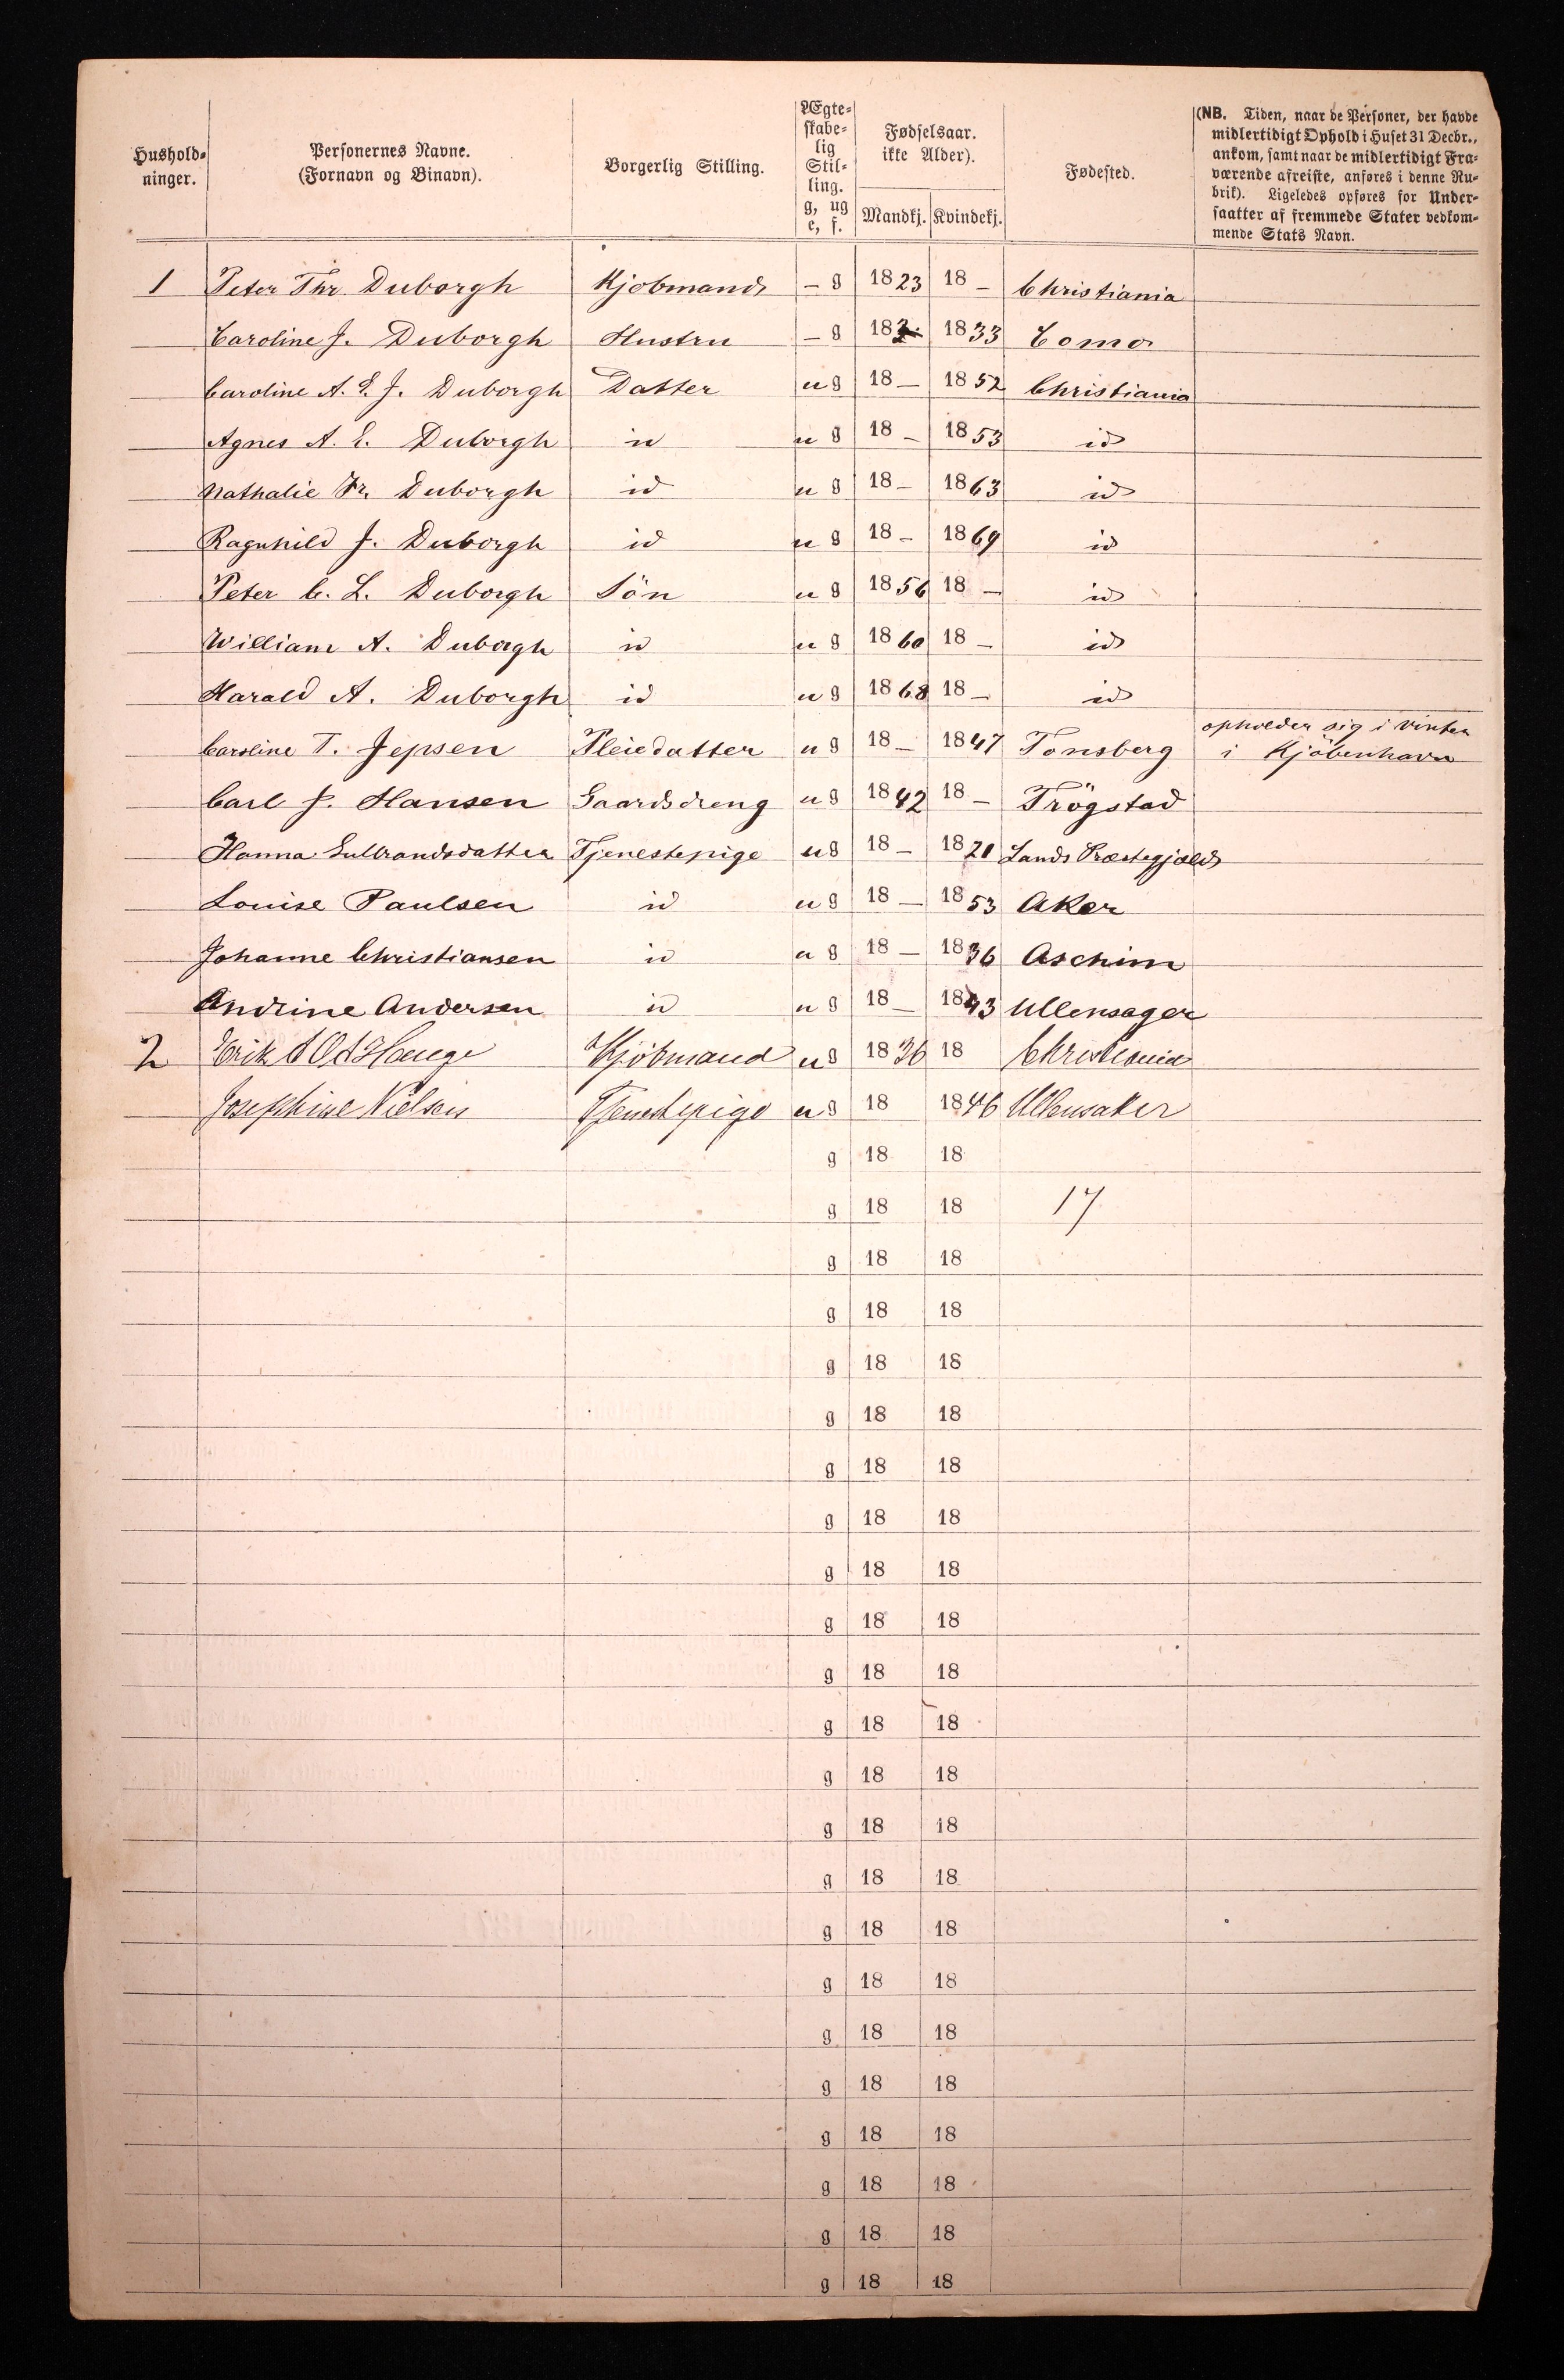 Hushold-
ninger.
Personernes Navne.
(Fornavn og Binavn).
Borgerlig Stilling.
Ægte-
skabe-
lig
Stil-
ling.
g, ug
e, f.
Fødselsaar.
ikke Alder).
Mandkj. Kvindekj.
Fødested.
(NB. Tiden, naar de Personer, der havde
midlertidigt Ophold i Huset 31 Decbr.,
ankom, samt naar de midlertidigt Fra-
værende afreiste, anføres i denne Ru-
brik). Ligeledes opføres for Under-
saatter af fremmede Stater vedkom-
mende Stats Navn.
1 Peter Thr. Duborgh Kjöbmand – g 1823 18 – Christiania
Caroline J. Duborgh Hustru – g 18 1833 Como
Caroline A. E. J. Duborgh Datter u g 18 – 1852 Christiania
Agnes A. E. Duborgh id u g 18 – 1853 id
Nathalie Fr. Duborgh id u g 18 – 1863 id
Ragnhild J. Duborgh id u g 18 – 1869 id
Peter C. L. Duborgh Sön u g 1856 18 – id
William A. Duborgh id u g 1860 18 – id
Harald A. Duborgh id u g 1868 18 – id
opholder sig i vinter
Caroline T. Jepsen Pleiedatter u g 18 – 1847 Tonsberg i Kjöbenhavn
Carl J. Hansen Gaardsdreng u g 1842 18 – Trögstad
Hanna Gulbrandsdatter Tjenestepige u g 18 – 1820 Lands Præstegjæld
Louise Paulsen id u g 18 – 1853 Aker
Johanne Christiansen id u g 18 – 1836 Aschim
Andrine Andersen id u g 18 – 1843 Ullensager
2 Erik Hauge Kjöbmand u g 1836 18 Christiania
Josephine Nielsen Tjenestepige u g 18 1846 Ullensaker
g 18 18
g 18 18 17
g 18 18
g 18 18
g 18 18
g 18 18
g 18 18
g 18 18
g 18 18
g 18 18
g 18 18
g 18 18
g 18 18
g 18 18
g 18 18
g 18 18
g 18 18
g 18 18
g 18 18
g 18 18
g 18 18
g 18 18
g 18 18